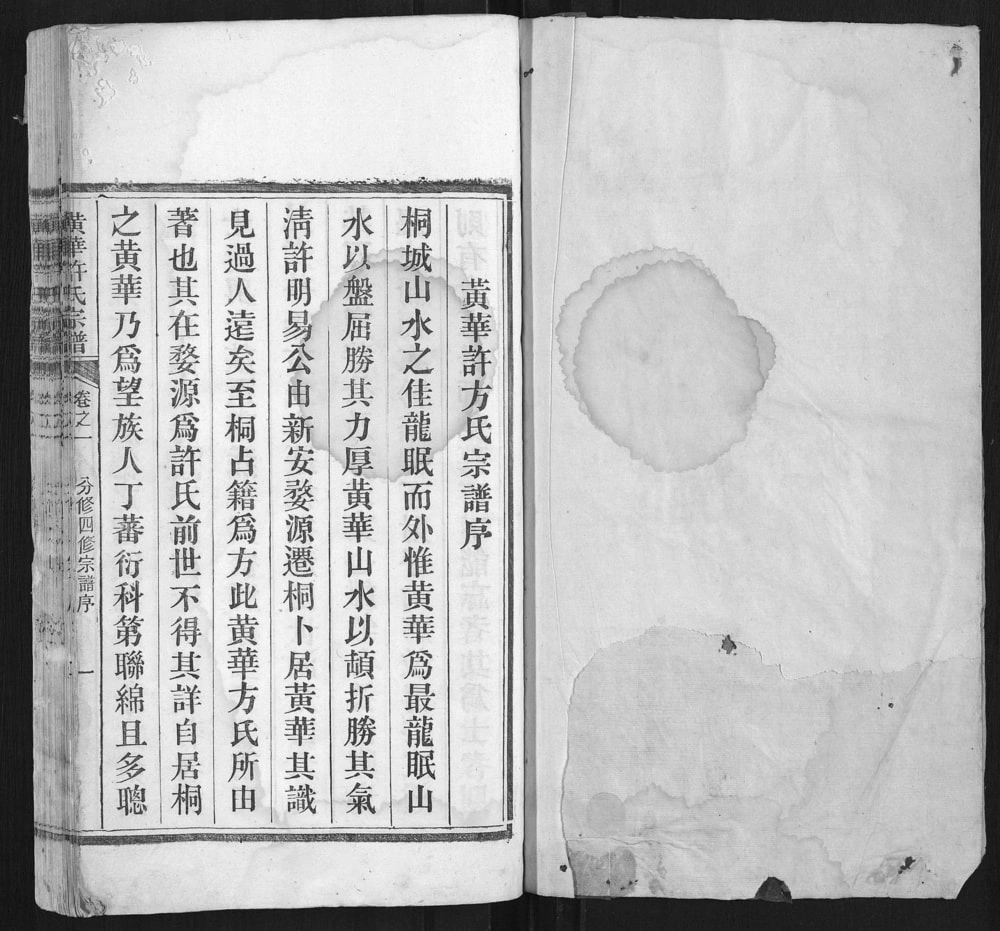 黃華許方氏宗譜序
桐城山水之佳龍眠而外惟黃華爲最龍眠山
水以盤屈勝其力厚黃華山水以頓折勝其氣
淸許明易公由新安婺源遷桐卜居黃華其識
見過人遠矣至桐占籍爲方此黃華方氏所由
著也其在婺源爲許氏前世不得其詳自居桐
之黃華乃爲望族人丁蕃衍科第聯綿且多聰
黃華許氏宗譜 卷之一 分修四修宗譜序 一